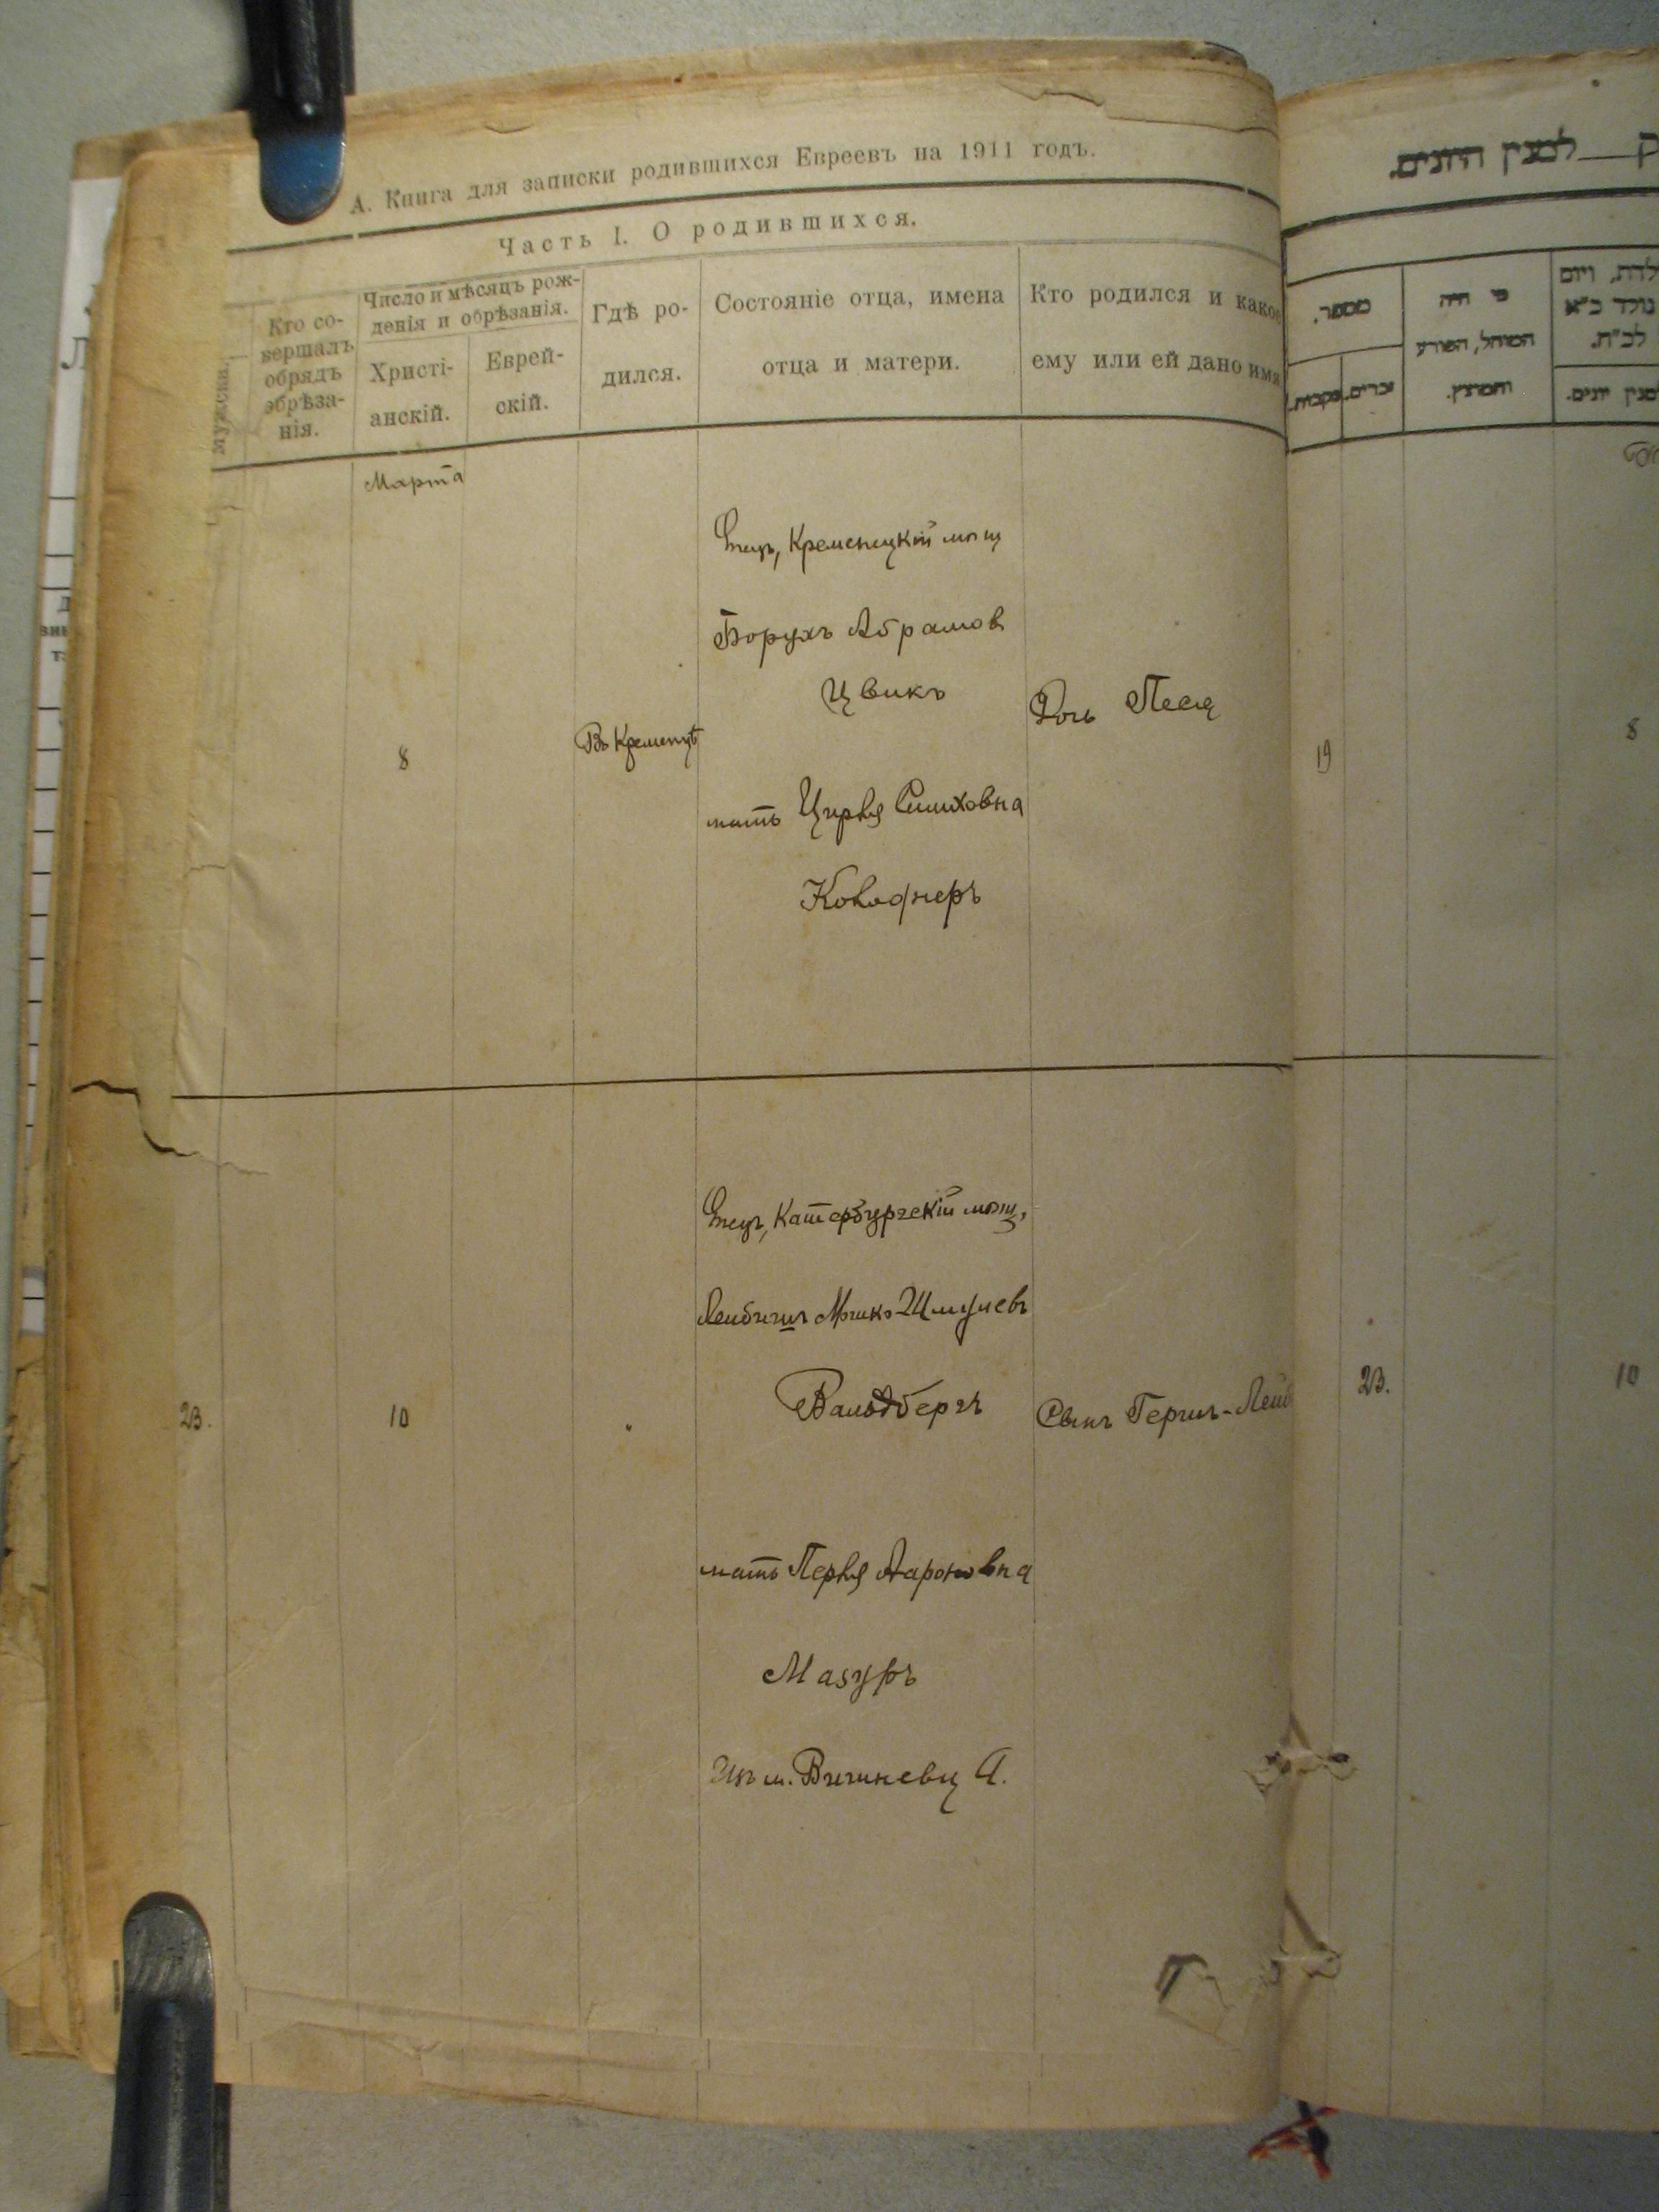 А. Книга для записки родившихся Евреевъ на 1911 годъ.
Часть I. О родившихся.
Мужска.
Кто со-
вершалъ
обрядъ
обрѣза-
нія.
Число и мѣсяцъ рож-
денія и обрѣзанія.
Христі-
анскій.
Еврей-
скій.
Гдѣ ро-
дился.
Состояніе отца, имена
отца и матери.
Кто родился и какое
ему или ей дано имя
Марта
8
Въ Кременцѣ
Отецъ, Кременецкій мѣщ
Борухъ Абрамов
Цвикъ
мать Цирля
Дочь Песя
23.
10
Отецъ, Катербургскій мѣщ,
Шмулевъ
Вальдбергъ
мать Перля Аароновна
Мазуръ
Изъ м. Вишневц А.
Сынъ Гершъ-Лейб
למנין היונים.
מספר.
זכרים.
נקבות.
מי היה
המוהל, הפורע
והמוצץ.
לדת, ויום
נולד כ"א
לב"ת.
למנין יונים.
19
8
23.
10